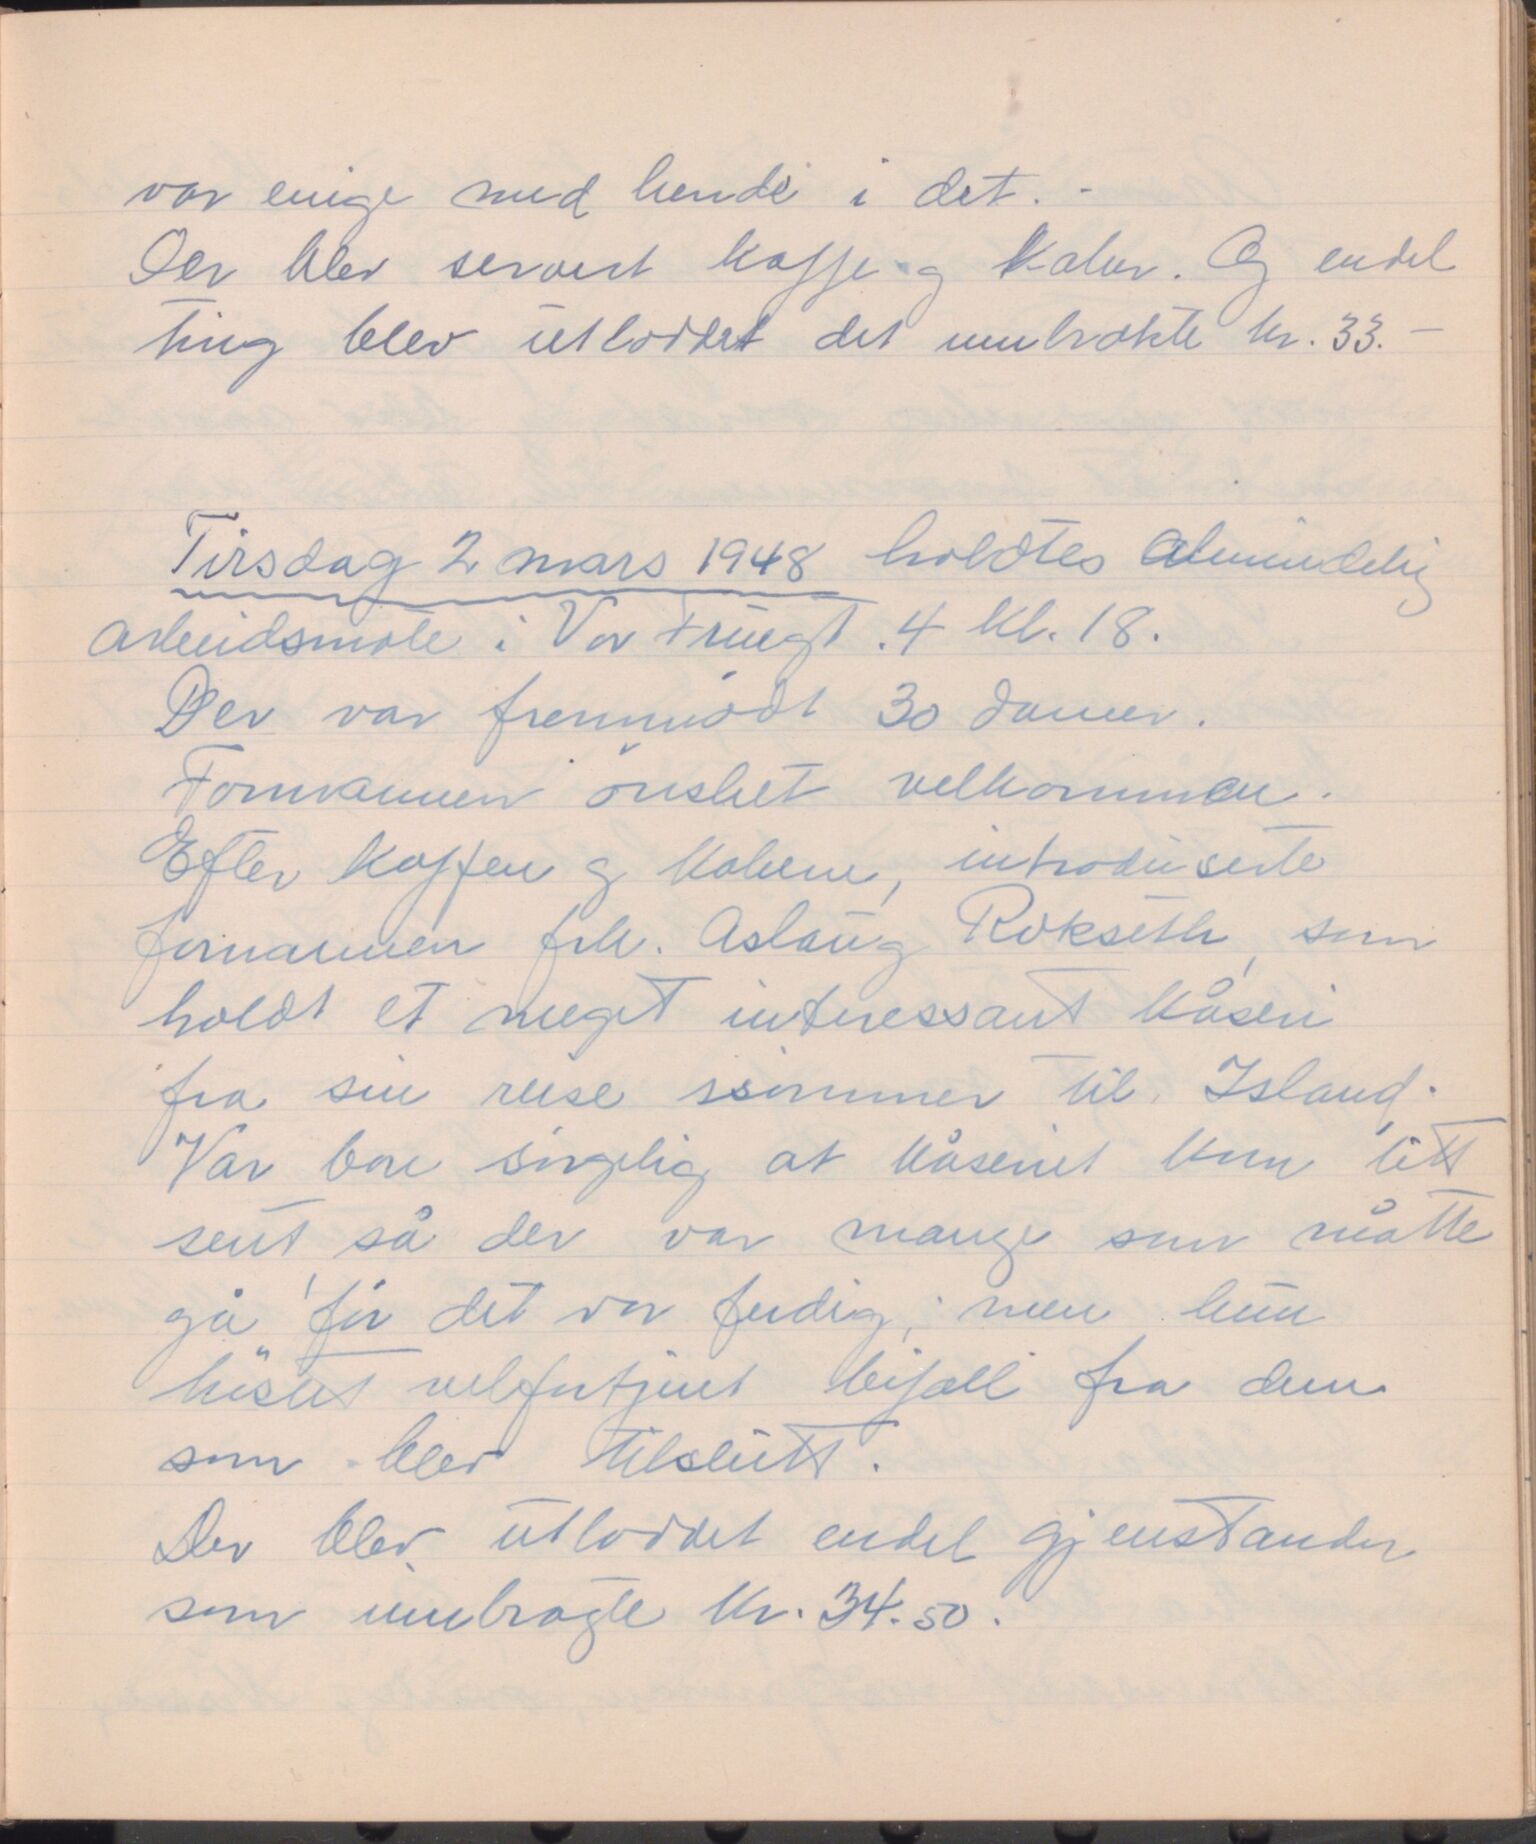 var enige med hende i det. -
Der blev servert kaffe og kaker. Og endel
ting blev utloddet det innbrakte kr. 33. -
Tirsdag 2 mars 1948 holdtes almindelig
arbeidsmøte i Vor Fruegt. 4 kl. 18.
Der var fremmødt 30 damer.
Formannen ønsket velkommen.
Efter kaffen og kakene, introduserte
formannen frk. Aslaug Rokseth, som
holdt et meget interessant kåseri
fra sin reise isommer til Island.
Var bare sørgelig at kåseriet kom litt
sent så der var mange som måtte
gå før det var ferdig, men hun
høstet velfortjent bifall fra dem
som blev tilslutt.
Der blev utloddet endel gjenstander
som innbragte kr. 34.50.